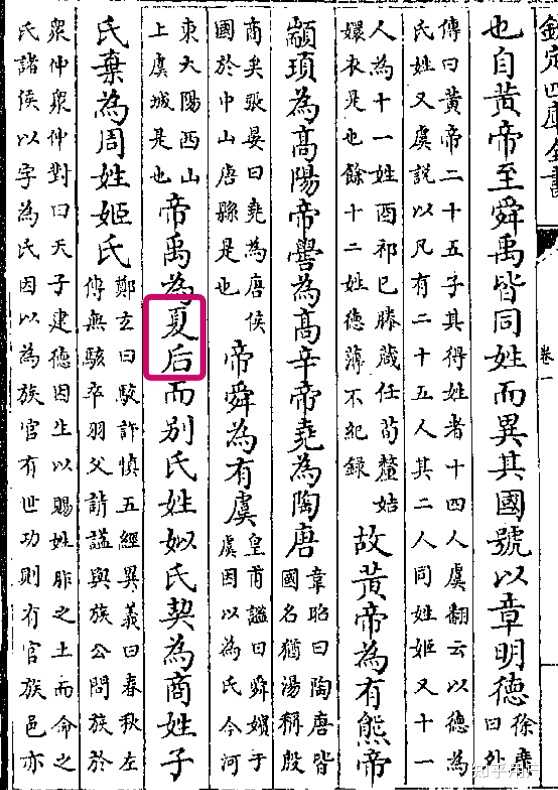 欽定四庫全書
卷一
也自黃帝至舜禹皆同姓而異其國號以章明德
徐廣
曰外
傳曰黃帝二十五子其得姓者十四人虞翻云以德為
氏姓又虞說以凡有二十五人其二人同姓姬又十一
人為十一姓酉祁己滕葴任荀釐姞
嬛衣是也餘十二姓德薄不紀錄
故黃帝為有熊帝
顓頊為高陽帝嚳為高辛帝堯為陶唐
韋昭曰陶唐皆
國名猶湯稱殷
商矣張晏曰堯為唐侯
國於中山唐縣是也
帝舜為有虞
皇甫謐曰舜嬪于
虞因以為氏今河
東大陽西山
上虞城是也
帝禹為夏后而別氏姓姒氏契為商姓子
氏棄為周姓姬氏
鄭玄曰駮許慎五經異義曰春秋左
傳無駭卒羽父請謚與族公問族於
眾仲眾仲對曰天子建德因生以賜姓胙之土而命之
氏諸侯以字為氏因以為族官有世功則有官族邑亦